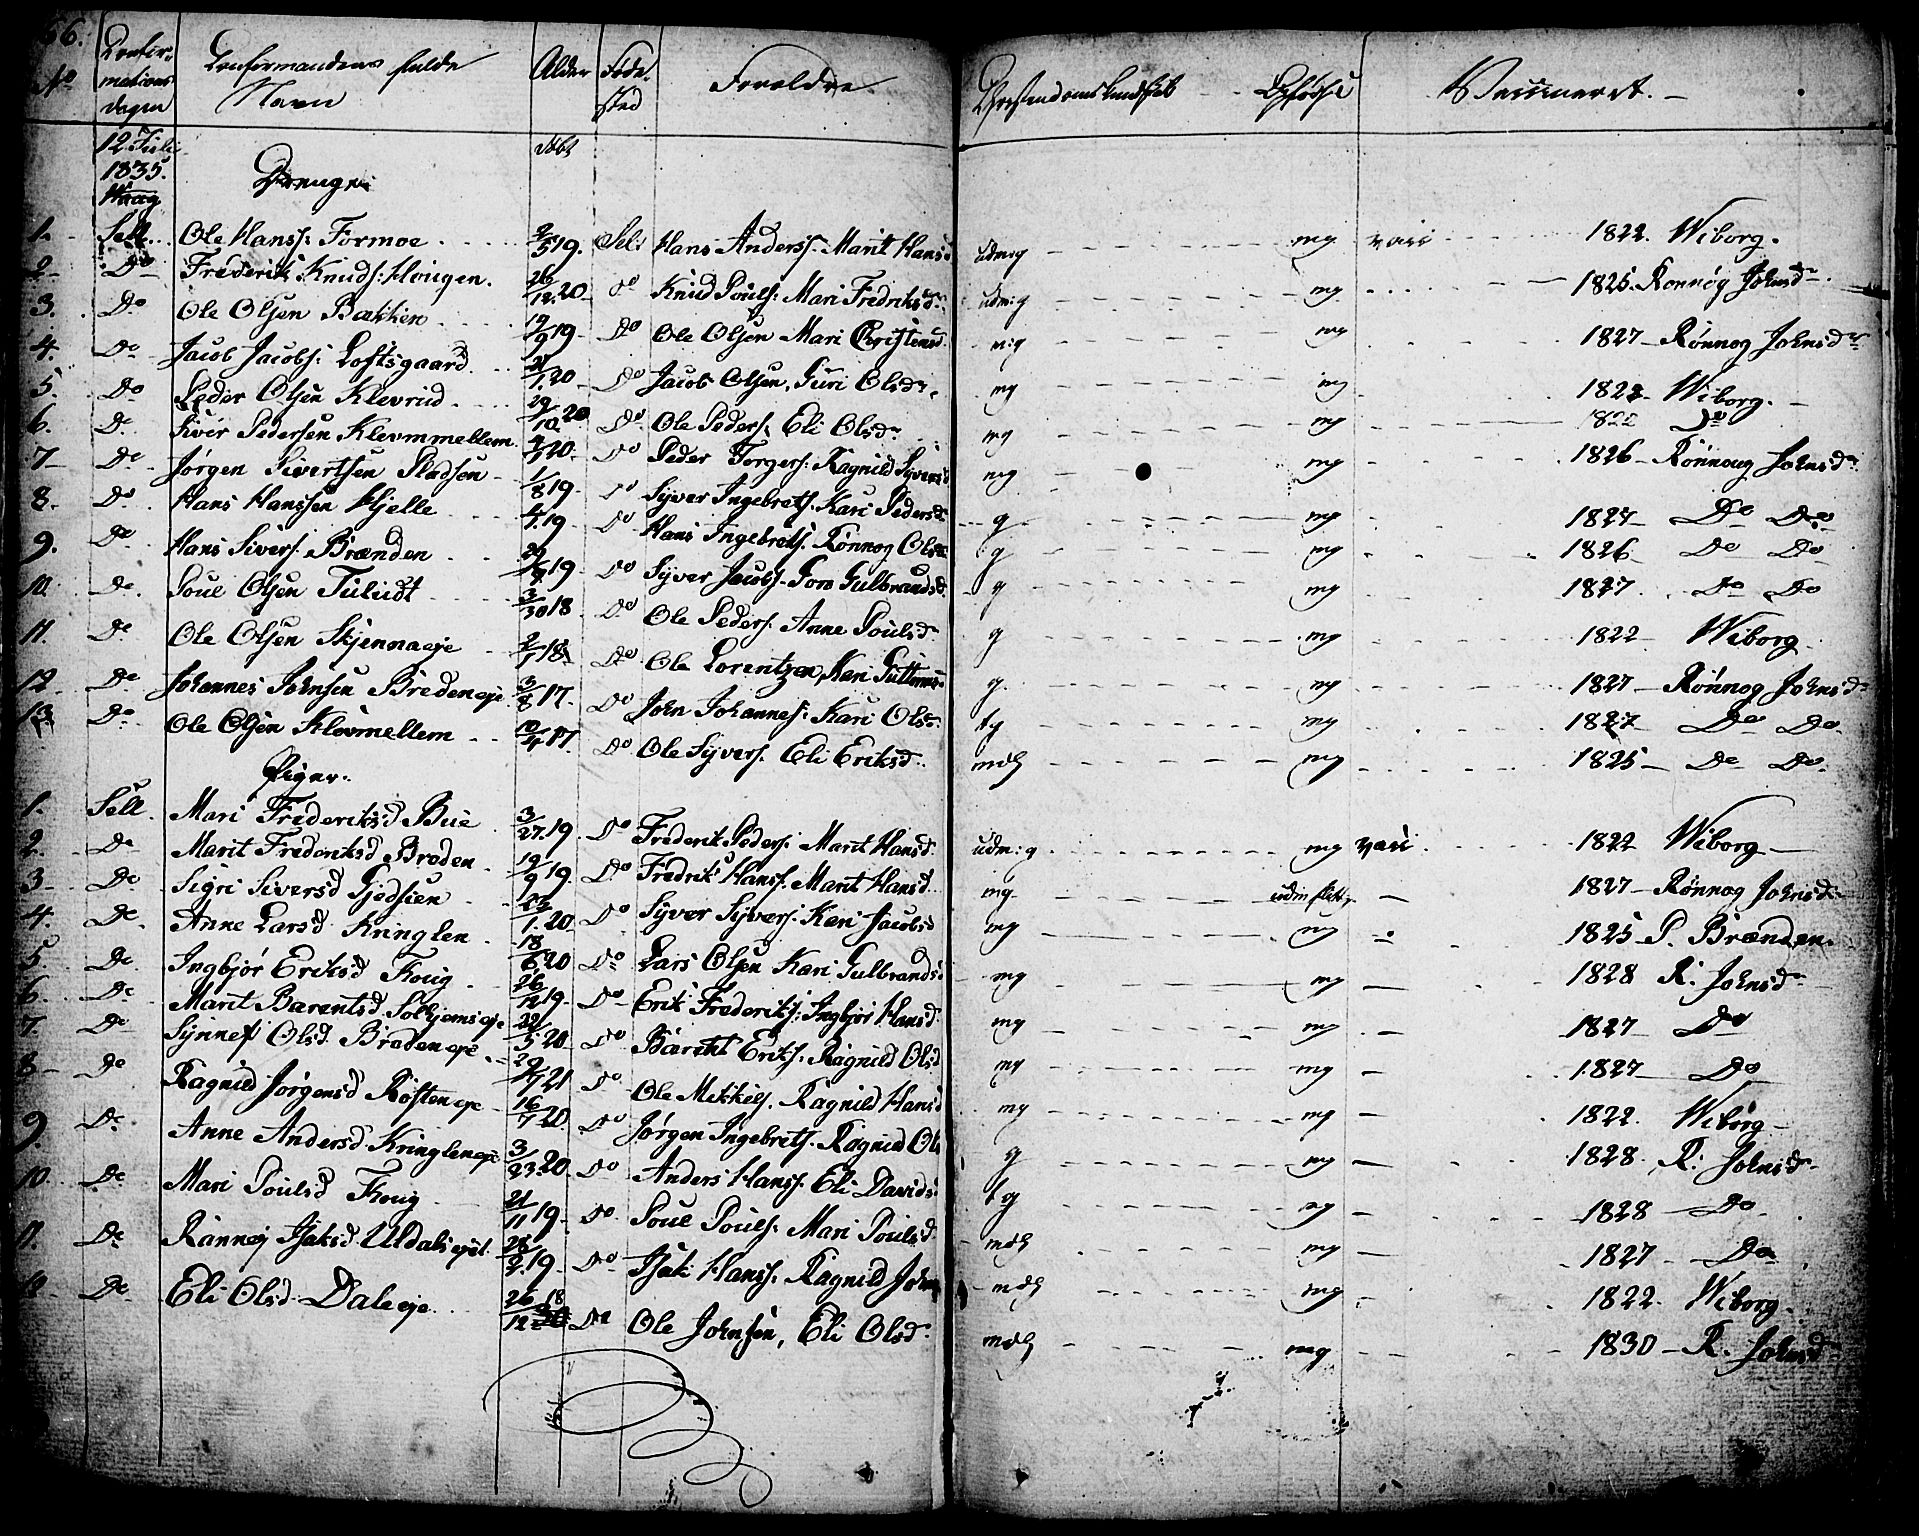 56.
No Confirmations dagen Confirmandens fulde Navn Alder Føde Sted Forældre Christendomskundskab Opførsel Vaccineret.
12 Juli 1835. døbt
Waag
Drenge.
1. Sell. Ole Hanss: Formoe 2/5 19. Sel: Hans Anderss. Marit Hansd udm:g mg vacc 1822. Wiborg.
2 Do Frederik Knuds: Hougen. 26/12 20 Do Knud Pouls: Mari Fredriksdr udm:g mg 1825. Ronnøg Johnsdr
3. Do Ole Olsen Bakken 19/9 19 Do Ole Olsen Mari Christensd m:g mg 1827 Rønnog Johnsdr
4. Do Jacob Jacobs: Loftsgaard. 21/1 20 Do Jacob Olsen, Guri Olsdr. mg mg 1822 Wiborg.
5. Do Peder Olsen Klevrud. 29/10 20 Do Ole Peders: Eli Olsdr mg mg 1822 Do
6. Do Siver Pedersen Klevmmellem. 20 Do Peder Torgers: Ragnild Syversd mg mg 1826 Rønnoug Johnsdr
7 Do Jørgen Sivertsen Pladsen 1/8 19 Do Syver Ingebrets. Kari Pedersdr g mg 1827 Do Do
8. Do Hans Hanssen Hjelle 19 Do Hans Ingebrets. Rønnog Olsdr g mg 1826 Do Do
9. Do Hans Sivers. Brænden 19 Do Syver Jacobs. Goro Gulbrandsd g mg 1827. Do Do
10. Do Poul Olsen Tuludt 3/30 18 Do Ole Peders. Anne Poulsdr g mg 1822 Wiborg
11. Do Ole Olsen Skjennaeje 2/1 18 Do Ole Lorentzen, Kari g. mg 1827 Rønnog Johnsdr
12 Do Johannes Johnsen Bredeneje 3/8 17. Do John Johannes: Kari Olsdr tg mg 1827 Do Do.
13. Do Ole Olsen Klevmellem 10/4 17. Do Ole Syvers. Eli Eriksd. mdl mg 1825 Do Do
Piger.
1. Sell. Mari Frideriksd Bue 3/27 19. Do Frederik Peders. Marit Hansd. udm:g mg vacc 1822 Wiborg
2. Do Marit Frederiksd Breden 19/9 19. Do Fredrik Hanss. Marit Hansd. mg 1827 Rønnog Johnsdr
3 Do Sigri Siversd 23/1 20 Do Syver Syvers: Kari Jacobsd mg mg 1825 P. Brænden.
4. Do Anne Larsd Kringlen 18/6 20 Do Lars Olsen Kari Gulbrandsd mg mg 1828 R. Johnsdr
5 Do Ingbjør Eriksd Houg 26/12 19. Do Erik Frederiks: Ingbjør Hansd. mg mg 1827 Do
6. Do Marit Barentsd Solhjemseje 22/5 20 Do Barent Eriks: Ragnild Olsd mg mg 1827 Do
7. Do Synnef Olsd. Bredeneje 29/7 21 Do Ole Mikkels. Ragnild Hansd mg mg 1822. Wiborg
8 Do Ragnild Jørgensd Røsteneje 16/7 20 Do Jørgen Ingebrets. Ragnild Ols g mg 1828. R. Johnsdr
9. Do Anne Andersd Kringleneje 3/23 20. Do Anders Hanss. Eli Davids tg mg 1828 Do
10. Do Mari Poulsd Houg 21/11 19. Do Poul Pouls. Mari Poulsd mdl mg 1827 Do
11. Do Rønnøj Isaksd Uldalsejet 28/2 19 Do Isak Hanss. Ragnild John mdl mg 1822. Wiborg.
12 Do Eli Olsd Daleeje 26/12 18 Do Ole Johnsen, Eli Olsdr. mdl mg 1830 R. Johnsd